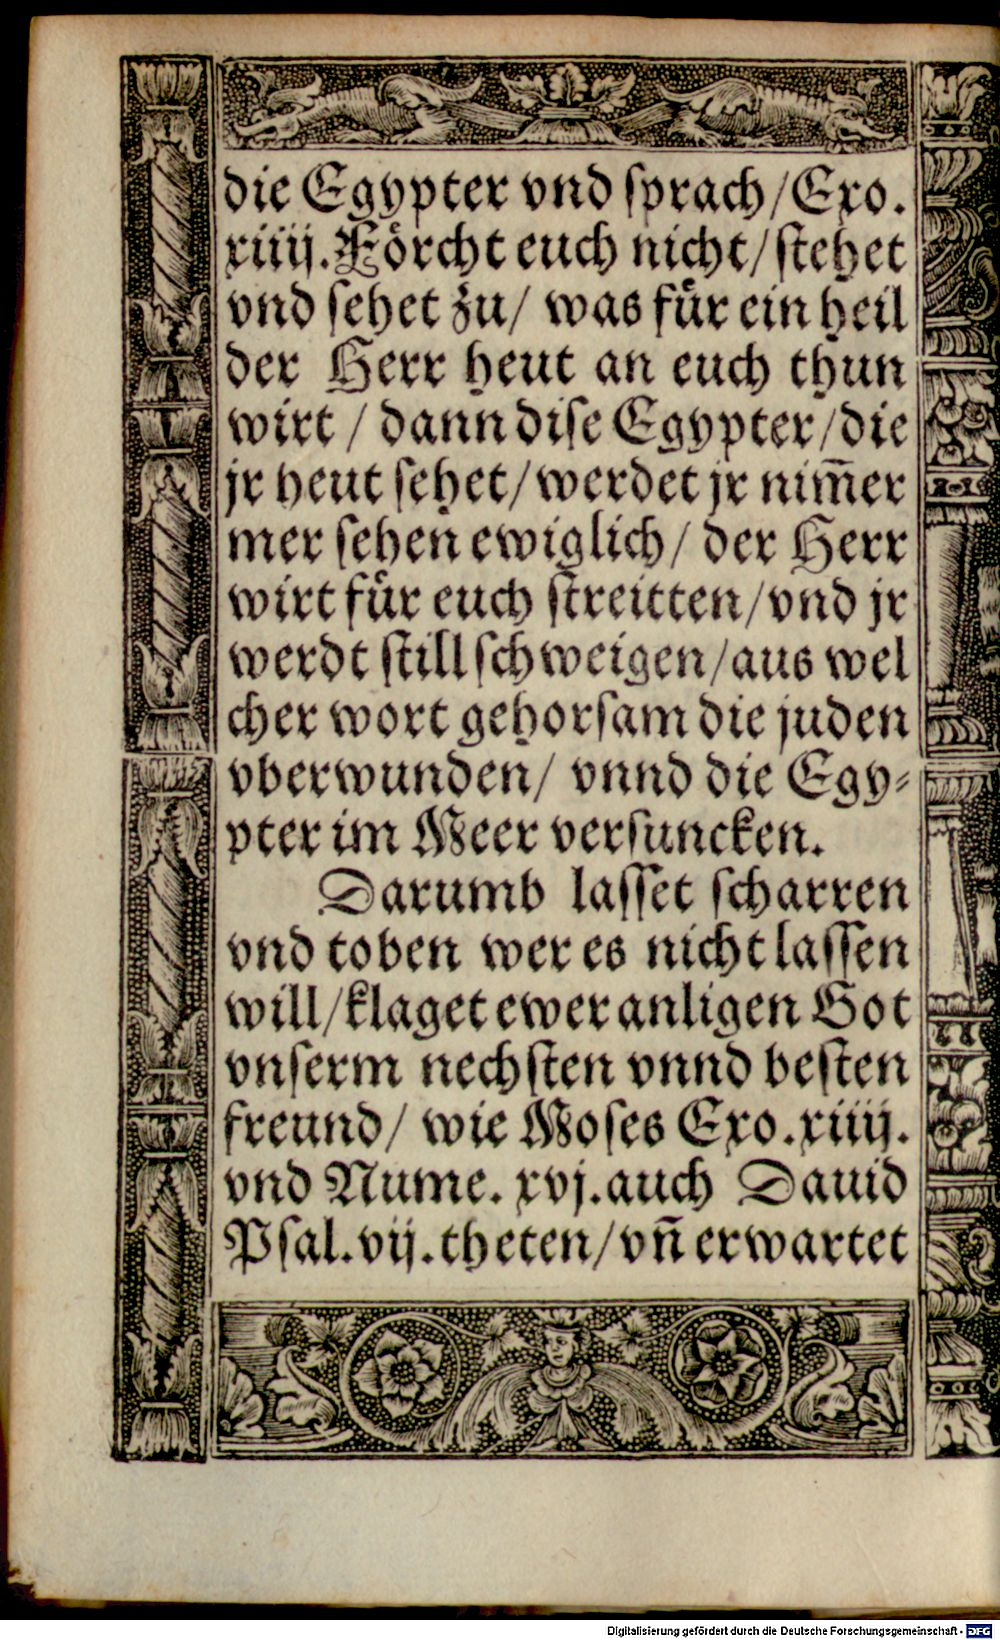 die Egypter vnd sprach/Exo.
xiiij. Förcht euch nicht/stehet
vnd sehet zu/ was für ein heil
der Herr heut an euch thun
wirt / dann dise Egypter/die
jr heut sehet/werdet jr nim̃er
mer sehen ewiglich/ der Herr
wirt für euch streitten/vnd jr
werdt still schweigen/aus wel
cher wort gehorsam die juden
vberwunden/ vnnd die Egy⸗
pter im Meer versuncken.
Darumb lasset scharren
vnd toben wer es nicht lassen
will/klaget ewer anligen Got
vnserm nechsten vnnd besten
freund/ wie Moses Exo.xiiij.
vnd Nume. xvj. auch Dauid
Psal.vij.theten/vñ erwartet
Digitalisierung gefördert durch die Deutsche Forschungsgemeinschaft - DFG